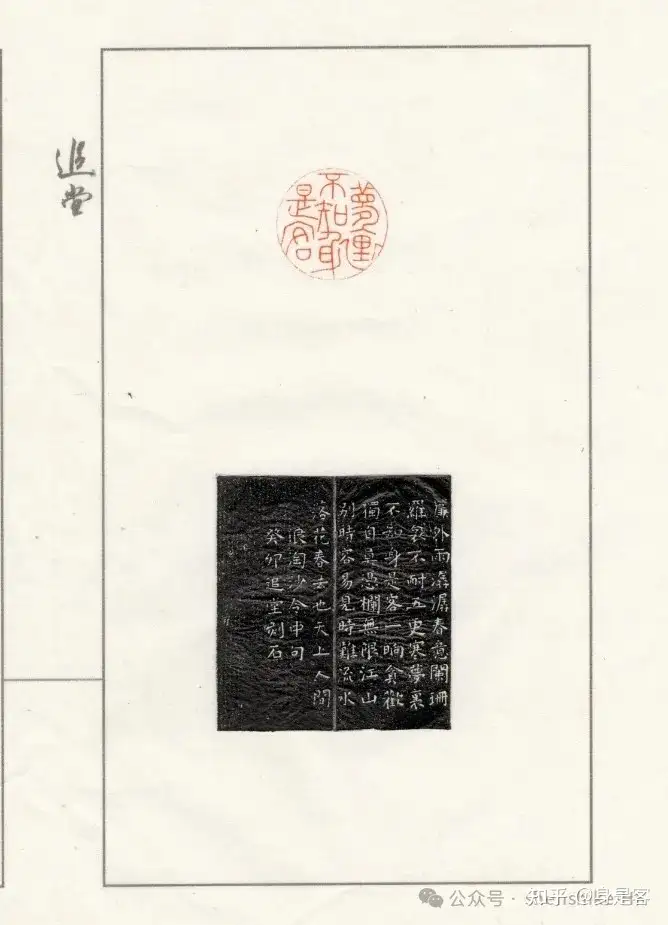 追堂
夢裡
不知身
是客
簾外雨潺潺春意闌珊
羅衾不耐五更寒夢裏
不知身是客一晌貪歡
獨自莫憑欄無限江山
別時容易見時難流水
落花春去也天上人間
浪淘沙令中句
癸卯追堂刻石
公众号 ·
知乎 @身是客